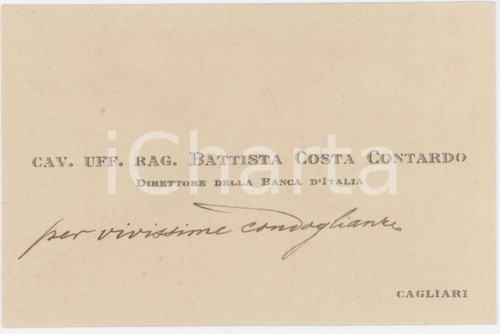 CAV. UFF. RAG. BATTISTA COSTA CONTARDO
DIRETTORE DELLA BANCA D'ITALIA
iCharta
per vivissime condoglianze
CAGLIARI